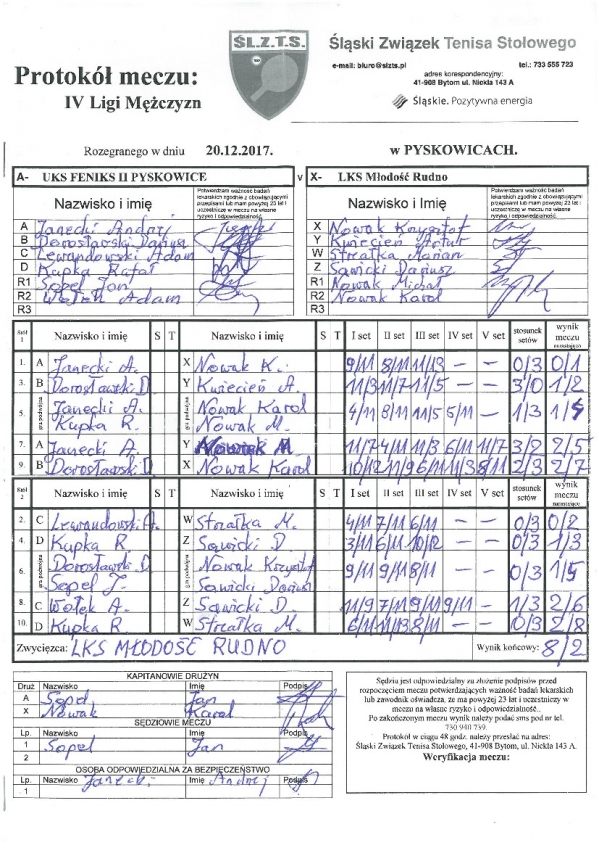 ŚL.Z.T.S.
Śląski Związek Tenisa Stołowego
e-mail: biuro@slzts.pl tel.: 733 555 723
adres korespondencyjny:
41-908 Bytom ul. Nickla 143 A
Śląskie. Pozytywna energia
Protokół meczu:
IV Ligi Mężczyzn
Rozegranego w dniu 20.12.2017. w PYSKOWICACH.
A- UKS FENIKS II PYSKOWICE v X- LKS Młodość Rudno
Nazwisko i imię Potwierdzam ważność badań lekarskich zgodnie z obowiązującymi przepisami lub mam powyżej 23 lat i uczestniczę w meczu na własne ryzyko i odpowiedzialność. Nazwisko i imię Potwierdzam ważność badań lekarskich zgodnie z obowiązującymi przepisami lub mam powyżej 23 lat i uczestniczę w meczu na własne ryzyko i odpowiedzialność.
A Janecki Andrzej X Nowak Krzysztof
B Dorosławski Dariusz Y Kwiecień Artur
C Lewandowski Adam W Strzałka Marian
D Kupka Rafał Z Sawicki Dariusz
R1 Sopel Jan R1 Nowak Michał
R2 Wołek Adam R2 Nowak Karol
R3 R3
Stół 1 Nazwisko i imię S T Nazwisko i imię S T I set II set III set IV set V set stosunek setów wynik meczu narastająco
1. A Janecki A. X Nowak K. 9/11 8/11 11/13 - - 0/3 0/1
3. B Dorosławski D Y Kwiecień A. 11/3 11/7 11/5 - - 3/0 1/2
5. gra podwójna Janecki A. Nowak Karol
Kupka R. Nowak M. 4/11 8/11 11/5 5/11 - 1/3 1/4
7. A Janecki A. Y Nowak M. 11/7 4/11 11/3 6/11 11/7 3/2 2/5
9. B Dorosławski D X Nowak Karol 10/12 11/9 6/11 11/3 8/11 2/3 2/7
Stół 2 Nazwisko i imię S T Nazwisko i imię S T I set II set III set IV set V set stosunek setów wynik meczu narastająco
2. C Lewandowski A. W Strzałka M. 4/11 7/11 6/11 - - 0/3 0/2
4. D Kupka R Z Sawicki D 3/11 6/11 10/12 - - 0/3 1/3
6. gra podwójna Dorosławski D Nowak Krzysztof
Sopel J. Sawicki Dariusz 9/11 9/11 8/11 - - 0/3 1/5
8. C Wołek A. Z Sawicki D. 11/9 7/11 9/11 9/11 - 1/3 2/6
10. D Kupka R W Strzałka M. 6/11 11/13 8/11 - - 0/3 2/8
Zwycięzca: LKS MŁODOŚĆ RUDNO Wynik końcowy: 8/2
KAPITANOWIE DRUŻYN
Druż Nazwisko Imię Podpis
A Sopel Jan
X Nowak Karol
SĘDZIOWIE MECZU
Lp. Nazwisko Imię Podpis
1 Sopel Jan
2
OSOBA ODPOWIEDZIALNA ZA BEZPIECZEŃSTWO
Lp. Nazwisko Janecki Imię Andrzej Podpis
1
Sędzia jest odpowiedzialny za złożenie podpisów przed
rozpoczęciem meczu potwierdzających ważność badań lekarskich
lub zawodnik oświadcza, że ma powyżej 23 lat i uczestniczy w
meczu na własne ryzyko i odpowiedzialność..
Po zakończonym meczu wynik należy podać sms pod nr tel.
730 940 739.
Protokół w ciągu 48 godz. należy przesłać na adres:
Śląski Związek Tenisa Stołowego, 41-908 Bytom, ul. Nickla 143 A.
Weryfikacja meczu: